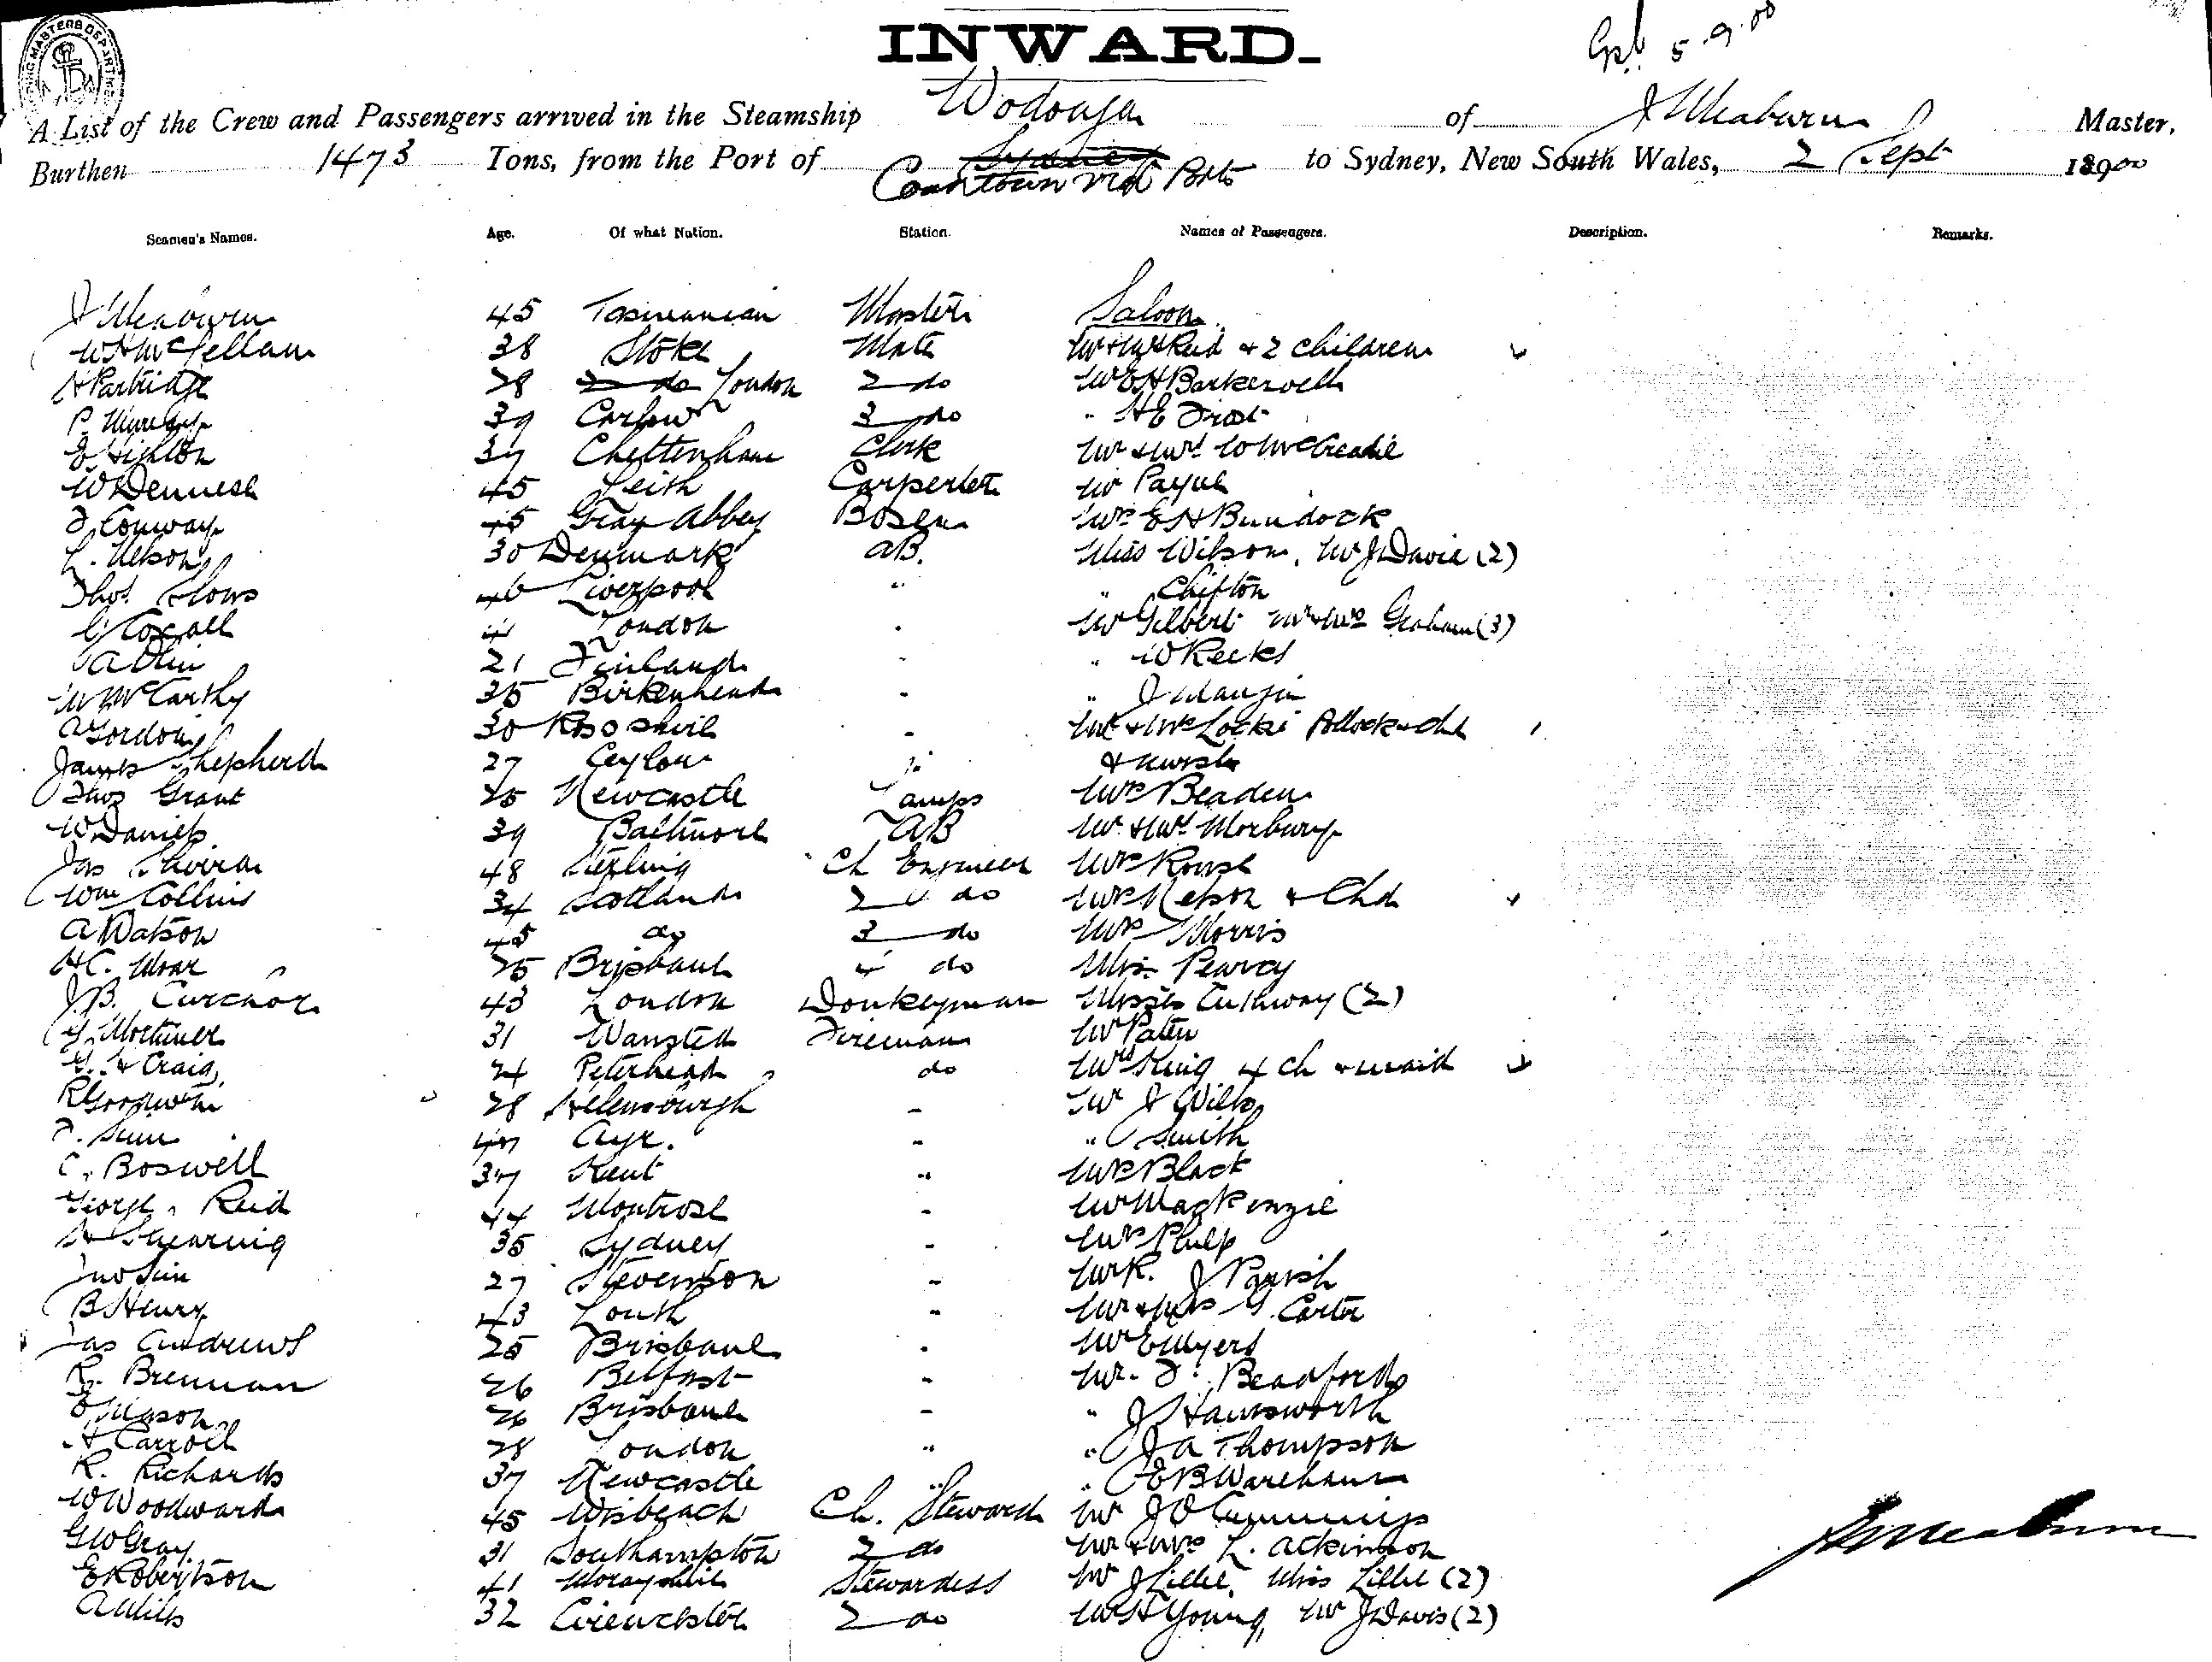 INWARD.
5.9.00
A List of the Crew and Passengers arrived in the Steamship Wodonga of J Meaburn Master,
Burthen 1473 Tons, from the Port of Sydney Cooktown via Ports to Sydney, New South Wales, 2 Sept 1900
Seamen's Names. Age. Of what Nation. Station. Names of Passengers. Description. Remarks.
J Meaburn 45 Tasmanian Master Saloon
38 Stoke Mate Mr & Mrs Reid & 2 Children
H Partridge 28 2 do London 2 do Mr E H Baskerville
39 Carlow 3 do " H E
E Highton 37 Cheltenham Clerk Mr & Mrs W McCreadie
W Dennese 45 Leith Carpenter Mr Payne
J Conway 45 Gray Abbey Bosen Mrs E H Bundock
L. Nelson 30 Denmark AB. Miss Wilson, Mr J Davis (2)
Thos 46 Liverpool " " Clifton
C Coxall 41 London " Mr Gilbert Mr & Mrs Graham (3)
21 Finland " " W Reeks
W McCarthy 35 Birkenhead " " J
A Gordon 30 Ross shire " Mr & Mrs Lockie Pollock & chd
James Shepherd 27 Ceylon " & nurse
Thos Grant 25 Newcastle Lamps Mrs Beaden
W Daniels 39 Baltimore AB Mr & Mrs Morbury
Jas 48 Sterling Ch Engineer Mrs Rouse
Wm Collins 34 Scotland 2 do Mrs Nelson & Chd
A Watson 45 do 3 do Mrs Morris
H C. Moar 25 Brisbane 4 do Miss Pearcy
J B. 43 London Donkeyman Misses (2)
G. Mortimer 31 Wansted Fireman Mr Paten
Craig 24 Peterhead do Mrs King 4 ch & maid
R Goodwin 28 Helensburgh " Mr J Wills
47 Ayr. " " Smith
C. Boswell 37 Kent " Mrs Black
George Reid 44 Montrose " Mr Mackenzie
35 Sydney " Mrs Philp
Jno Sim 27 Stevenson " Mr R. J Parish
B Henry 43 Louth " Mr & Mrs G. Carter
Jas Andrews 25 Brisbane " Mr E Myers
R. Brennan 26 Belfast " Mr. J. Beadford
26 Brisbane " " J Hainsworth
H Carroll 28 London " " J A Thompson
R. Richards 37 Newcastle " " E B Wareham
W Woodward 45 Wisbeach Ch. Steward Mr J O Cummings
G W Gray 31 Southampton 2 do Mr & Mrs L. Ackinson
E Robertson 41 Morayshire Stewardess Mr J Lillie, Miss Lillie (2)
A Mills 32 Cirencester 2 do Mr H Young, Mr J Davis (2)
J Meaburn